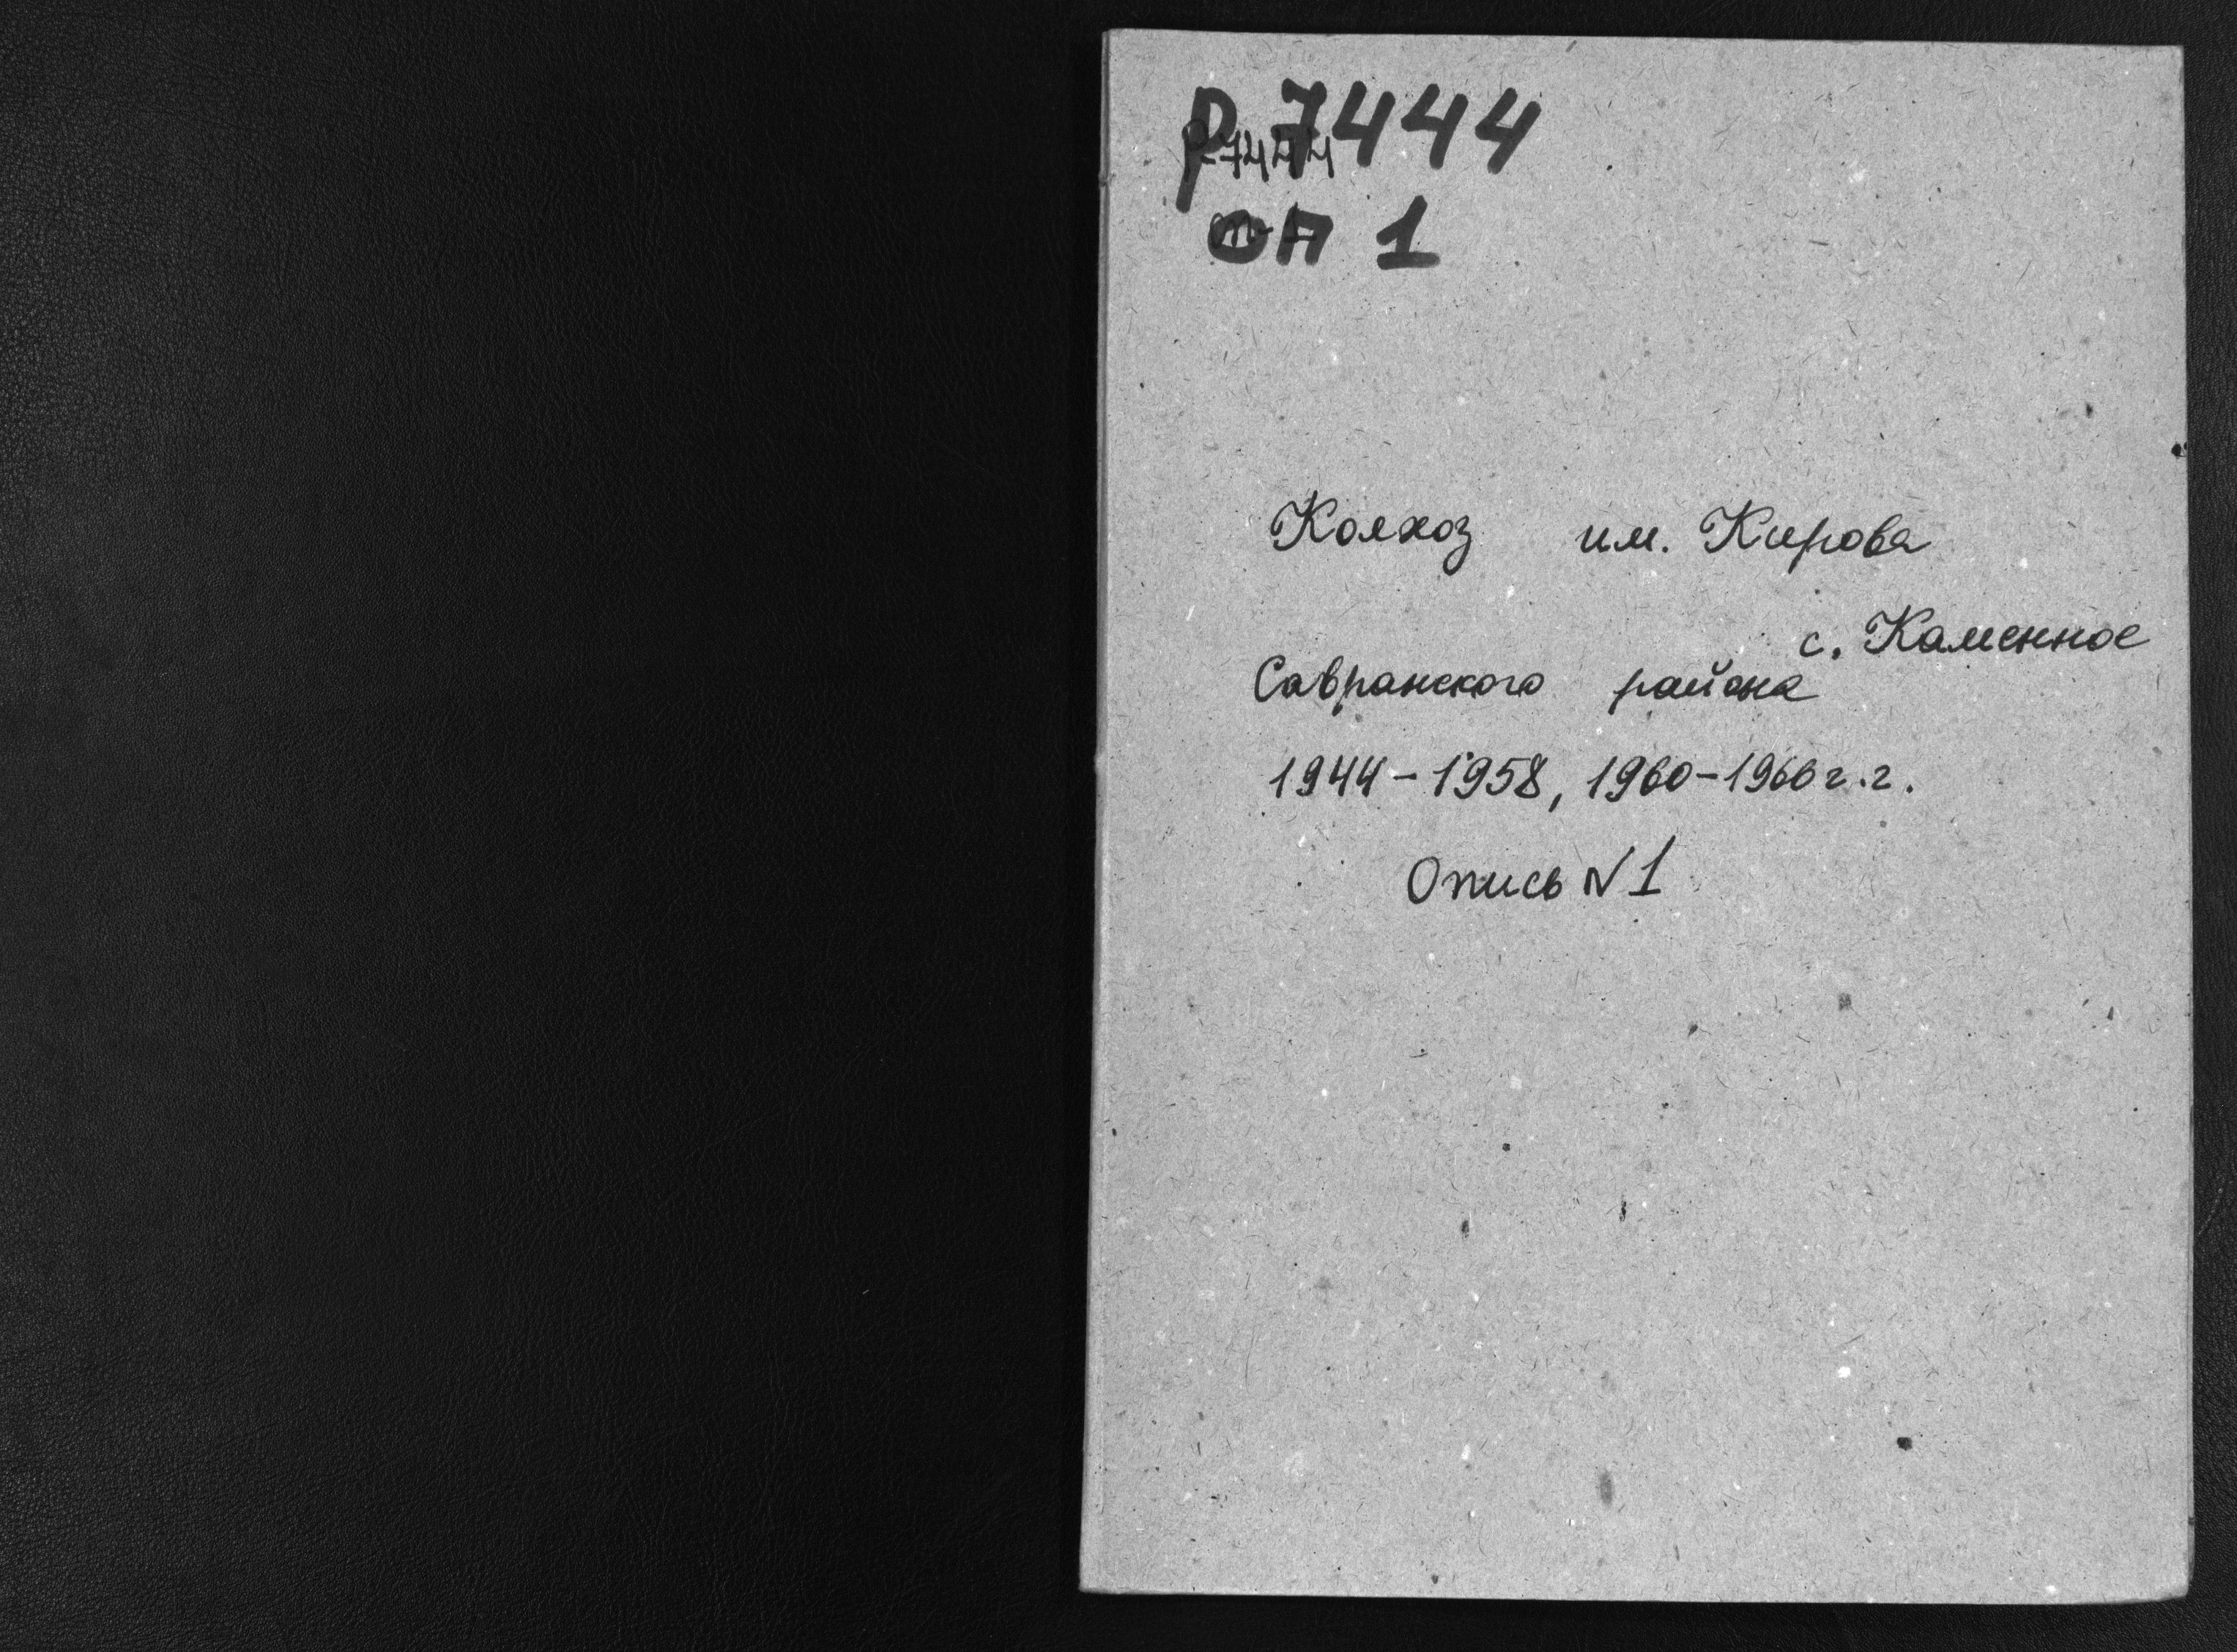 р 7444
р-7444
оп 1
Колхоз им. Кирова
с. Каменное
Савранского района
1944-1958, 1960-1966 г.г.
Опись N 1